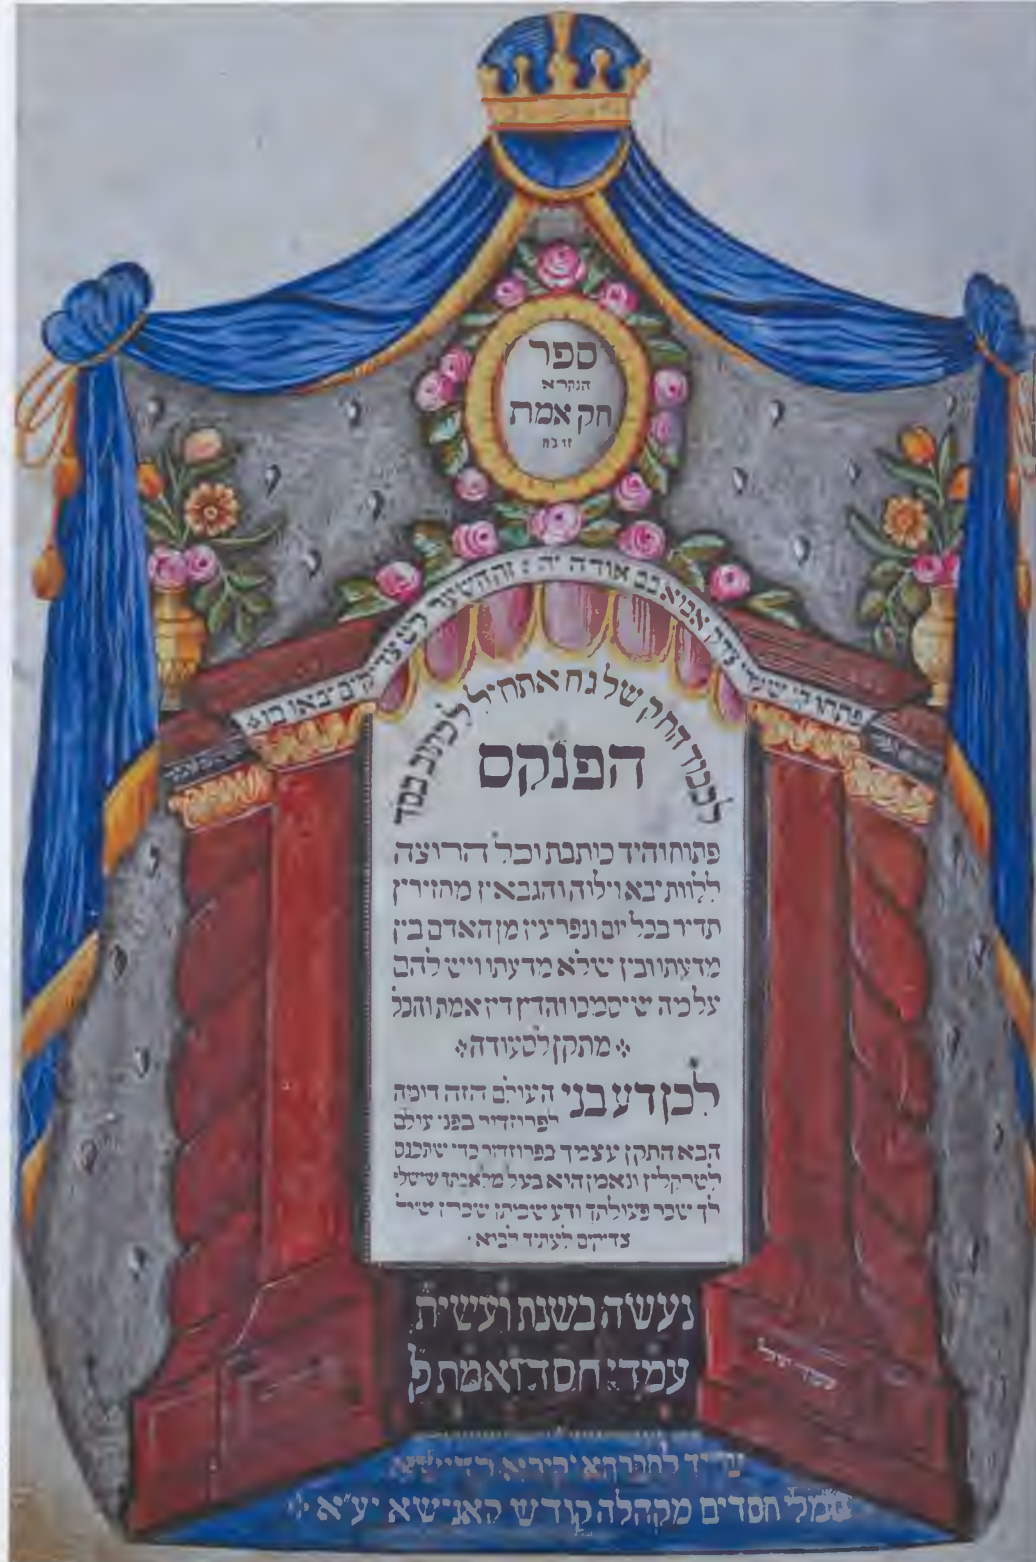 ספר
הנקרא
חק אמת
זו בת
פתחו לי שערי צדק אבוא בם אודה יה : זה השער לה' צדיקים יבאו בו
לכבוד החק של גח אתחיל לכתוב בסד
הפנקס
פתוח והיד כותבת וכל הרוצה
ללוות יבא וילוה והגבאין מחזירין
תדיר בכל יום ונפרעין מן האדם בין
מדעתו ובין שלא מדעתו ויש להם
על מה שיסמכו והדין דין אמת והכל
מתקן לסעודה
לכן דע בני העולם הזה דומה
לפרוזדור בפני עולם
הבא התקן עצמך בפרוזדור כדי שתכנס
לטרקלין ונאמן הוא בעל מלאכתך שישלם
לך שכר פעולתך ודע שמתן שכרן של
צדיקים לעתיד לבוא
נעשה בשנת ועשית
עמדי חסד ואמת ל
לחברה קדישא
גומלי חסדים מקהלה קודש קאנישא יע"א